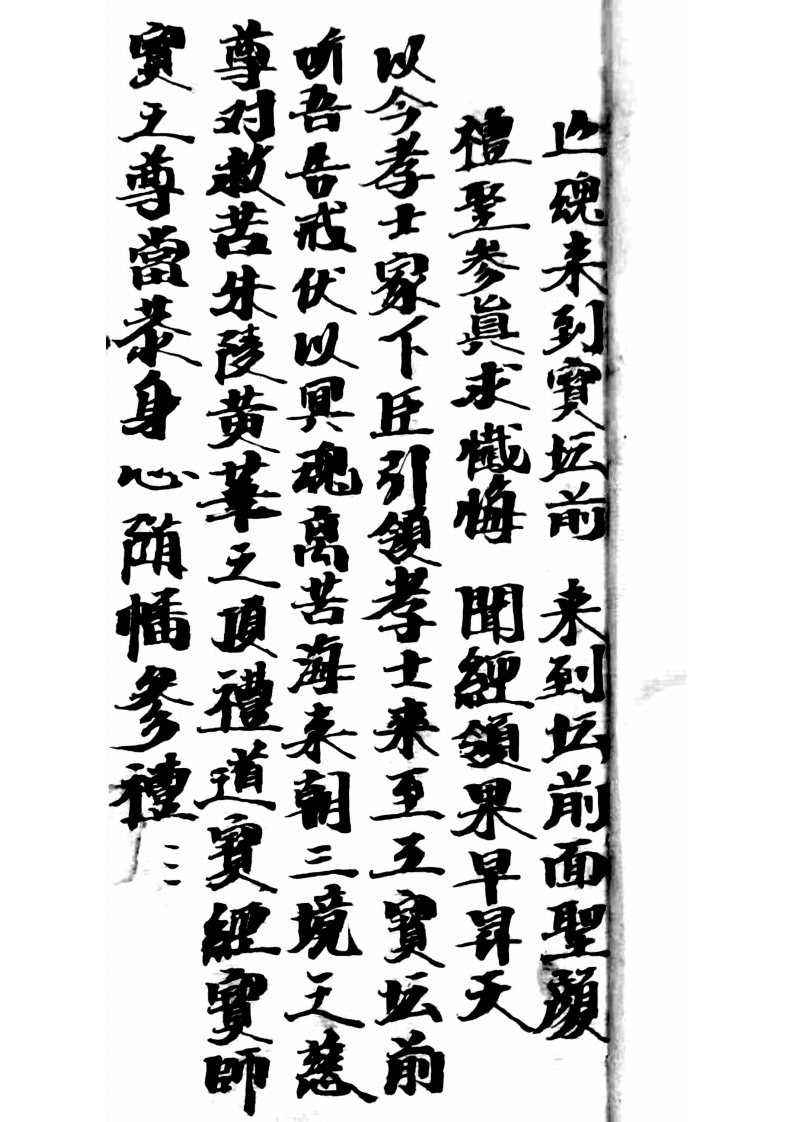 亡魂来到寳坛前 来到坛前面聖顔
禮聖参眞求懺悔 聞經領果早昇天
以今孝士家下臣引領孝士来至王寳坛前
听吾告戒伏以具魂离苦海来朝三境天慈
尊对救苦朱陵黄華之頂禮道寳經寳師
寳之尊當恭身心随幡参禮